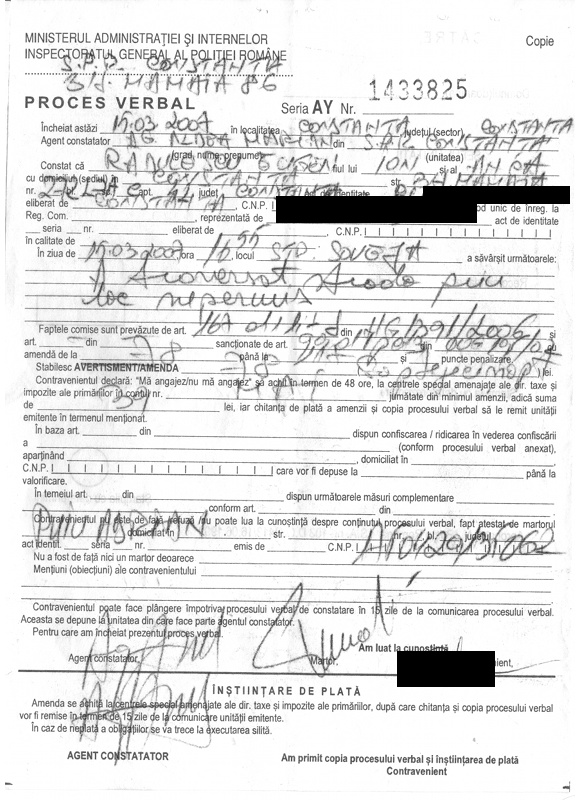 MINISTERUL ADMINISTRAŢIEI ŞI INTERNELOR
Copie
INSPECTORATUL GENERAL AL POLIŢIEI ROMÂNE
CONSTANTA
MAMAIA
1433825
PROCES VERBAL Seria AY Nr.
Încheiat astăzi 15.03 2007 în localitatea CONSTANTA judeţul (sector) CONSTANTA
Agent constatator AG. MARIAN din CONSTANTA
(grad, nume, prenume) (unitatea)
Constat că fiul lui ION şi al
cu domiciliul (sediul) în CONSTANTA str. MAMAIA
nr. judeţ CONSTANTA Act de identitate
eliberat de CONSTANTA C.N.P. cod unic de înreg. la
Reg. Com. , reprezentată de act de identitate
seria nr. eliberat de C.N.P.
în calitate de
În ziua de 15.03.2007 ora locul a săvârşit următoarele:
A traversat strada prin
loc nepermis
Faptele comise sunt prevăzute de art. 167 din HG 1391/2006 şi
art. din sancţionate de art. din cu
amendă de la 78 până la 78 şi puncte penalizare,
Stabilesc AVERTISMENT/AMENDA lei.
Contravenientul declară: "Mă angajez/nu mă angajez" să achit în termen de 48 ore, la centrele special amenajate ale dir. taxe şi
impozite ale primăriilor în contul nr. jumătate din minimul amenzii, adică suma
de 39 lei, iar chitanţa de plată a amenzii şi copia procesului verbal să le remit unităţii
emitente în termenul menţionat.
În baza art. din dispun confiscarea / ridicarea în vederea confiscării
a (conform procesului verbal anexat),
aparţinând , domiciliat în
C.N.P. care vor fi depuse la până la
valorificare.
În temeiul art. din dispun următoarele măsuri complementare
conform art. din
Contravenientul nu este de faţă /refuză /nu poate lua la cunoştinţă despre conţinutul procesului verbal, fapt atestat de martorul
domiciliat în str. nr. bl. judeţul
act identit. seria nr. emis de C.N.P.
Nu a fost de faţă nici un martor deoarece
Menţiuni (obiecţiuni) ale contravenientului
Contravenientul poate face plângere împotriva procesului verbal de constatare în 15 zile de la comunicarea procesului verbal.
Aceasta se depune la unitatea din care face parte agentul constatator.
Pentru care am încheiat prezentul proces verbal.
Am luat la cunoştinţă
Agent constatator, Martor,
ÎNŞTIINŢARE DE PLATĂ
Amenda se achită la centrele special amenajate ale dir. taxe şi impozite ale primăriilor, după care chitanţa şi copia procesului verbal
vor fi remise în termen de 15 zile de la comunicare unităţii emitente.
În caz de neplată a obligaţiilor se va trece la executarea silită.
AGENT CONSTATATOR
Am primit copia procesului verbal şi înştiinţarea de plată
Contravenient